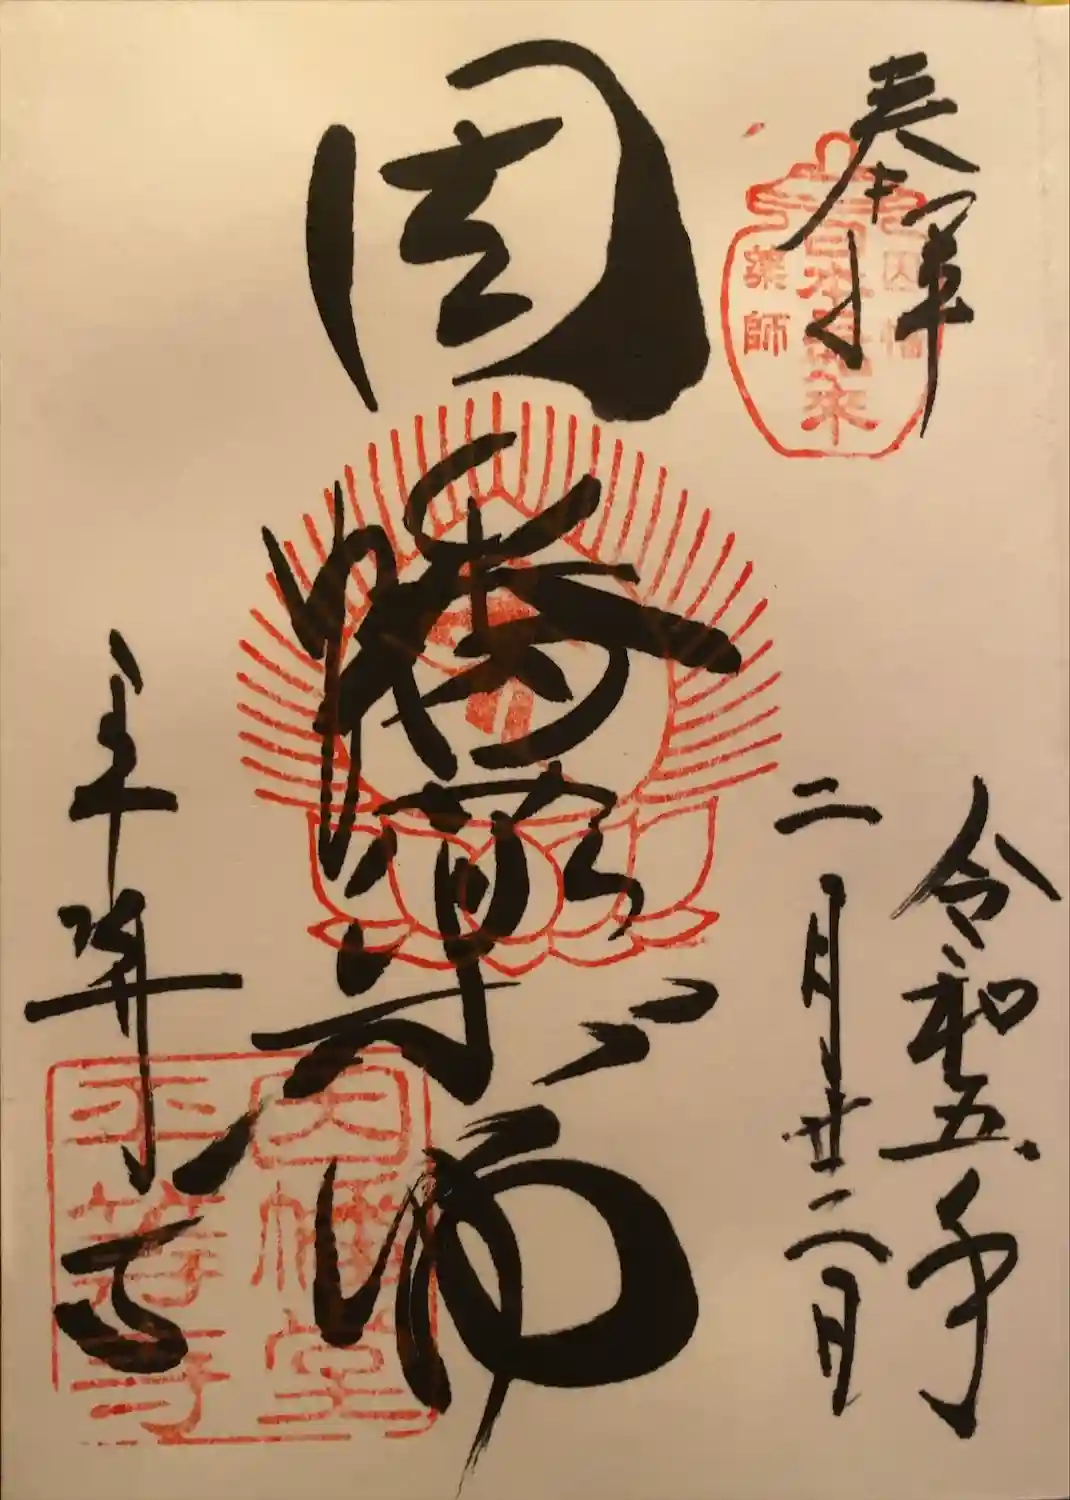 奉拝
日本三如来
因幡
薬師
令和五年
二月廿二日
因幡薬師
平等寺
因幡堂
平等寺